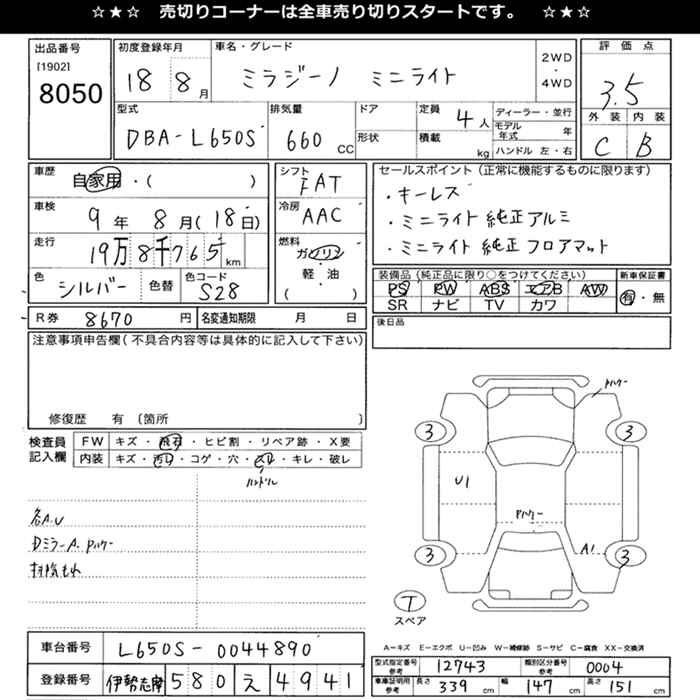 ☆★☆ 売切りコーナーは全車売り切りスタートです。 ☆★☆
出品番号
[1902]
8050
初度登録年月
18 8月
車名・グレード
ミラジーノ ミニライト
2WD
・
4WD
評価点
3.5
外装 内装
C B
型式
DBA-L650S
排気量
660 CC
ドア
形状
定員
4人
積載
kg
ディーラー・並行
モデル年式 年
ハンドル 左・右
車歴
自家用・( )
車検
9年 8月(18日)
走行
19万8千765km
色
シルバー
色替
色コード
S28
シフト
FAT
冷房
AAC
燃料
ガソリン
・
軽・油
( )
セールスポイント(正常に機能するものに限ります)
・キーレス
・ミニライト純正アルミ
・ミニライト純正フロアマット
装備品(純正品に限り○をつけてください)
PS PW ABS エアB AW
SR ナビ TV カワ
新車保証書
有・無
R券 8670円
名変通知期限 月 日
後日品
注意事項申告欄(不具合内容等は具体的に記入して下さい)
修復歴 有〔箇所 〕
検査員
記入欄
FW キズ・飛石・ヒビ割・リペア跡・X要
内装 キズ・汚れ・コゲ・穴・スレ・キレ・破レ
ハンドル
各A.U
Dミラー A. Pハゲー
Pハゲー
3 3
U1
Pハゲー
A1
3 3
T
スペア
車台番号 L650S-0044890
登録番号 伊勢志摩 580 え 4941
A-キズ E-エクボ U-凹み W-補修跡 S-サビ C-腐食 XX-交換済
型式指定番号 参考 12743
類別区分番号 参考 0004
車庫証明用 参考 長さ 339cm 幅 147cm 高さ 151cm